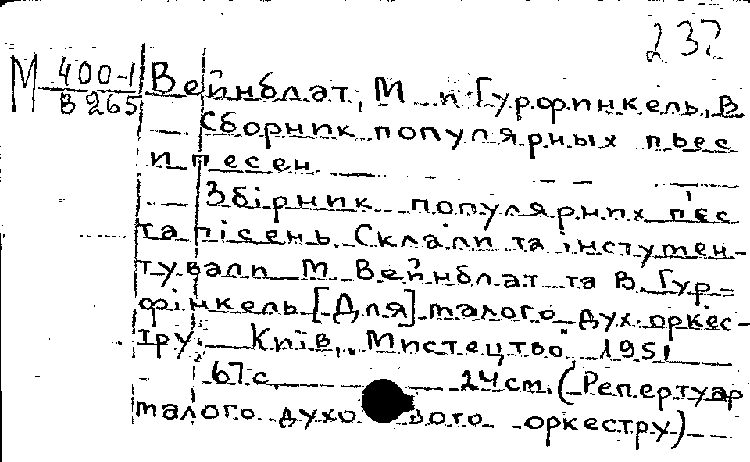 237
М 400-1 Вейнблат, М и Гурфинкель, В
В 265
Сборник популярных пьес
и песен
Збірник популярних п'єс
та пісень. Склали та інстумен-
тували М. Вейнблат та В. Гур-
фінкель [Для] малого дух. оркес-
тру. Київ, Мистецтво, 1951
67 с. 24 см. (Репертуар
малого духового оркестру)